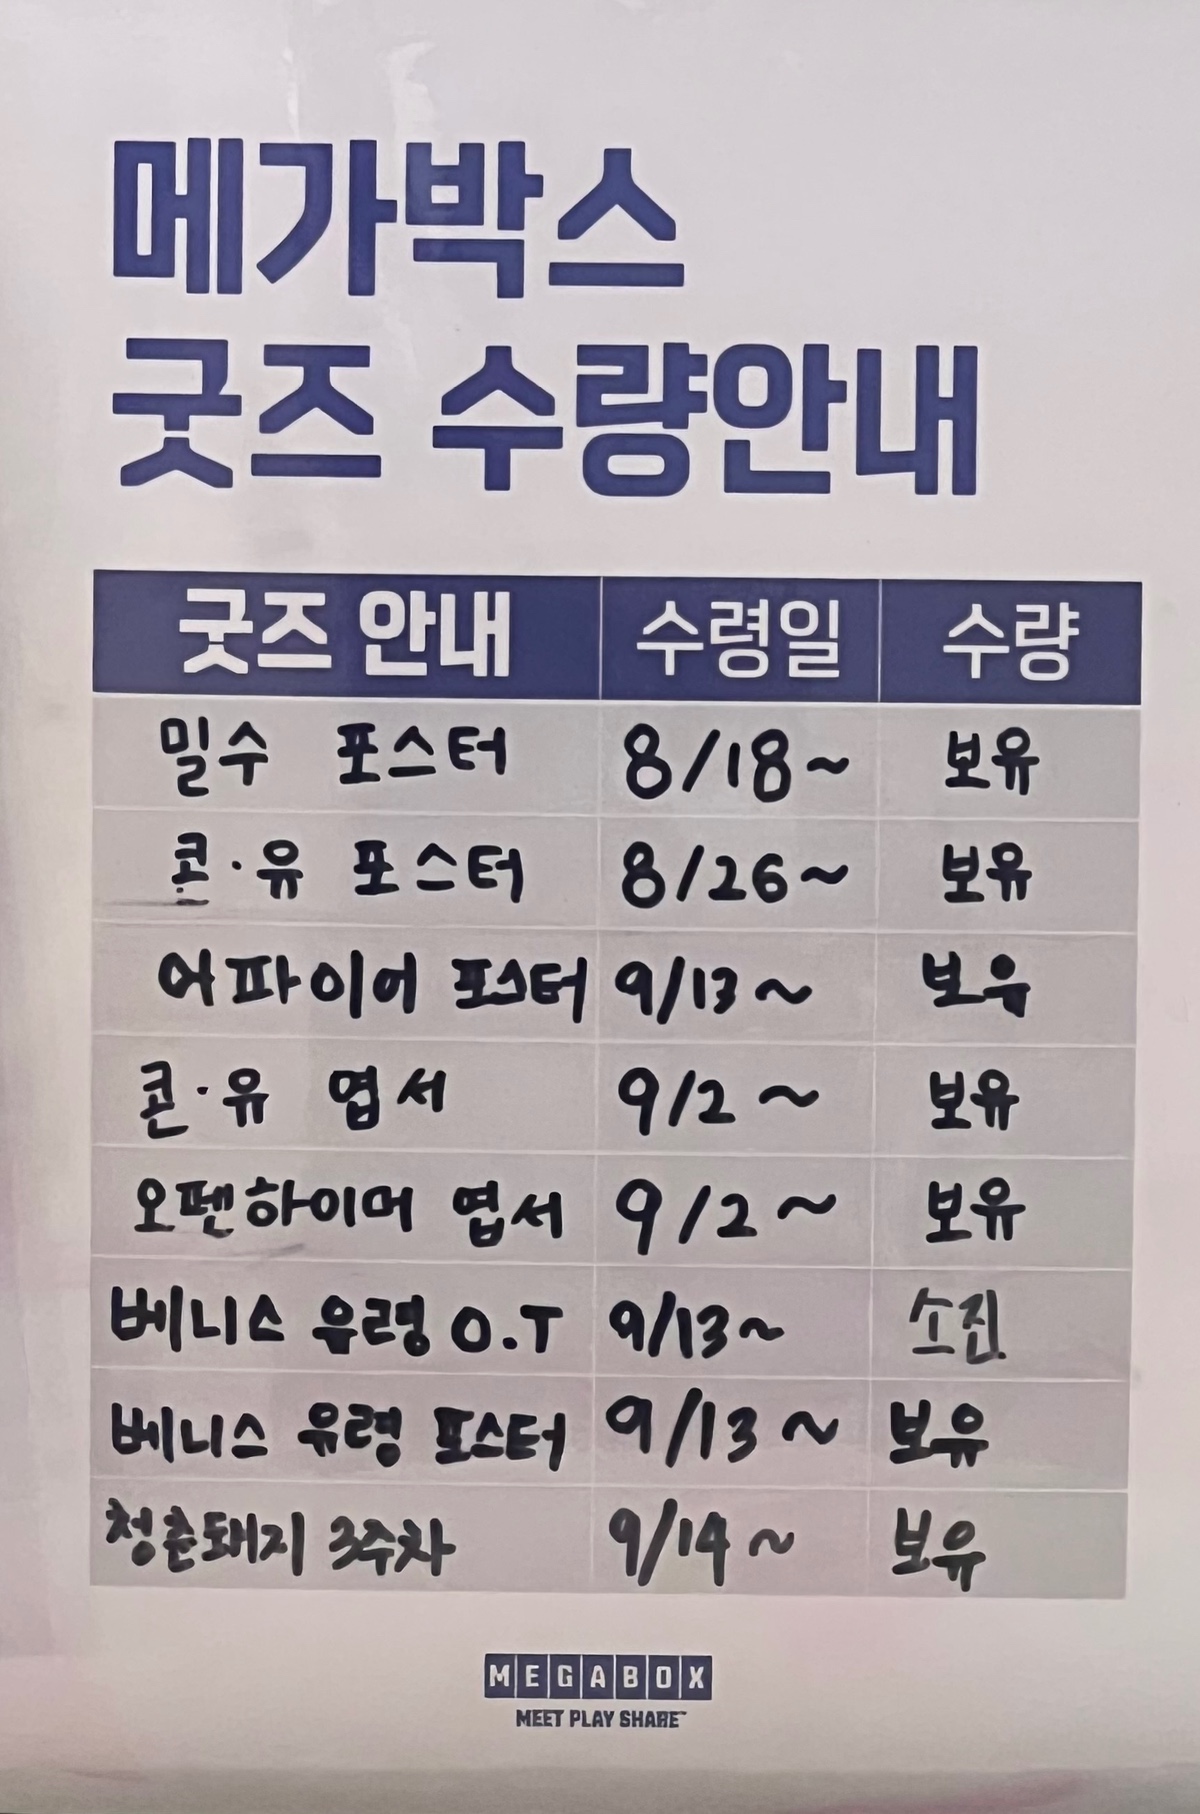 메가박스
굿즈 수량안내
굿즈 안내 수령일 수량
밀수 포스터 8/18~ 보유
콘·유 포스터 8/26~ 보유
어파이어 포스터 9/13~ 보유
콘·유 엽서 9/2~ 보유
오펜하이머 엽서 9/2~ 보유
베니스 유령 O.T 9/13~ 소진
베니스 유령 포스터 9/13~ 보유
청춘돼지 3주차 9/14~ 보유
MEGABOX
MEET PLAY SHARE™